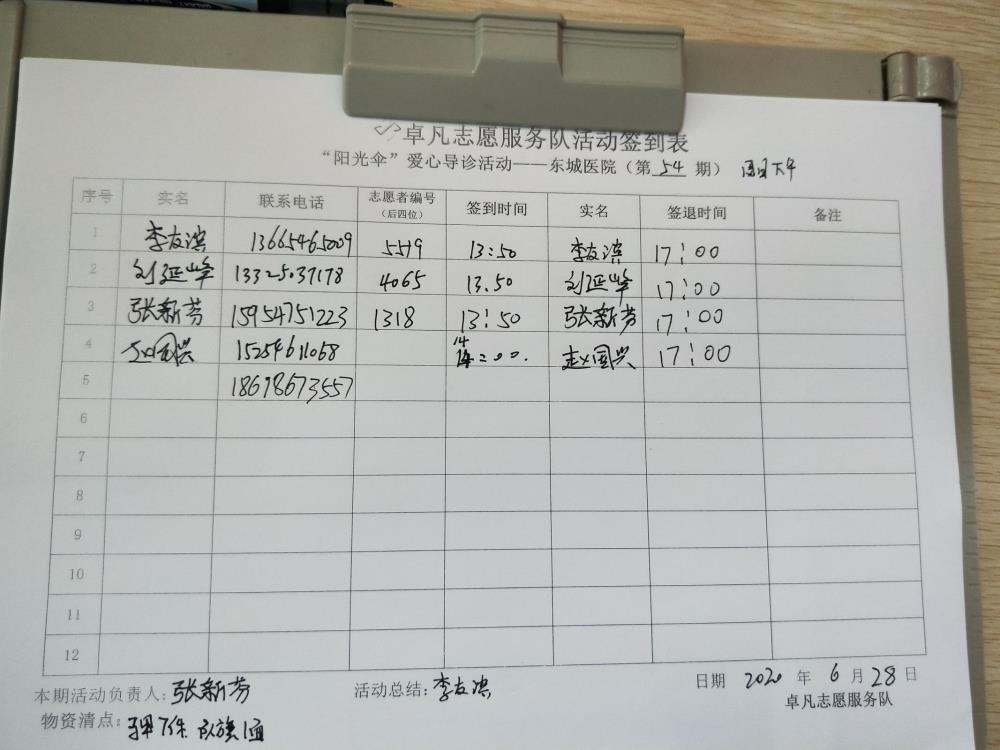 卓凡志愿服务队活动签到表
“阳光伞”爱心导诊活动——东城医院（第 54 期） 下午
序号 实名 联系电话 志愿者编号（后四位） 签到时间 实名 签退时间 备注
1 李友滨 13665465009 5519 13:50 李友滨 17:00
2 刘延峰 13325037178 4065 13.50 刘延峰 17:00
3 张新芳 15954751223 1318 13:50 张新芳 17:00
4 赵国兴 15254611068 14:00. 赵国兴 17:00
5 18678673557
6
7
8
9
10
11
12
本期活动负责人: 张新芳 活动总结: 李友滨 日期 2020 年 6 月 28 日
物资清点: 队旗1面 卓凡志愿服务队